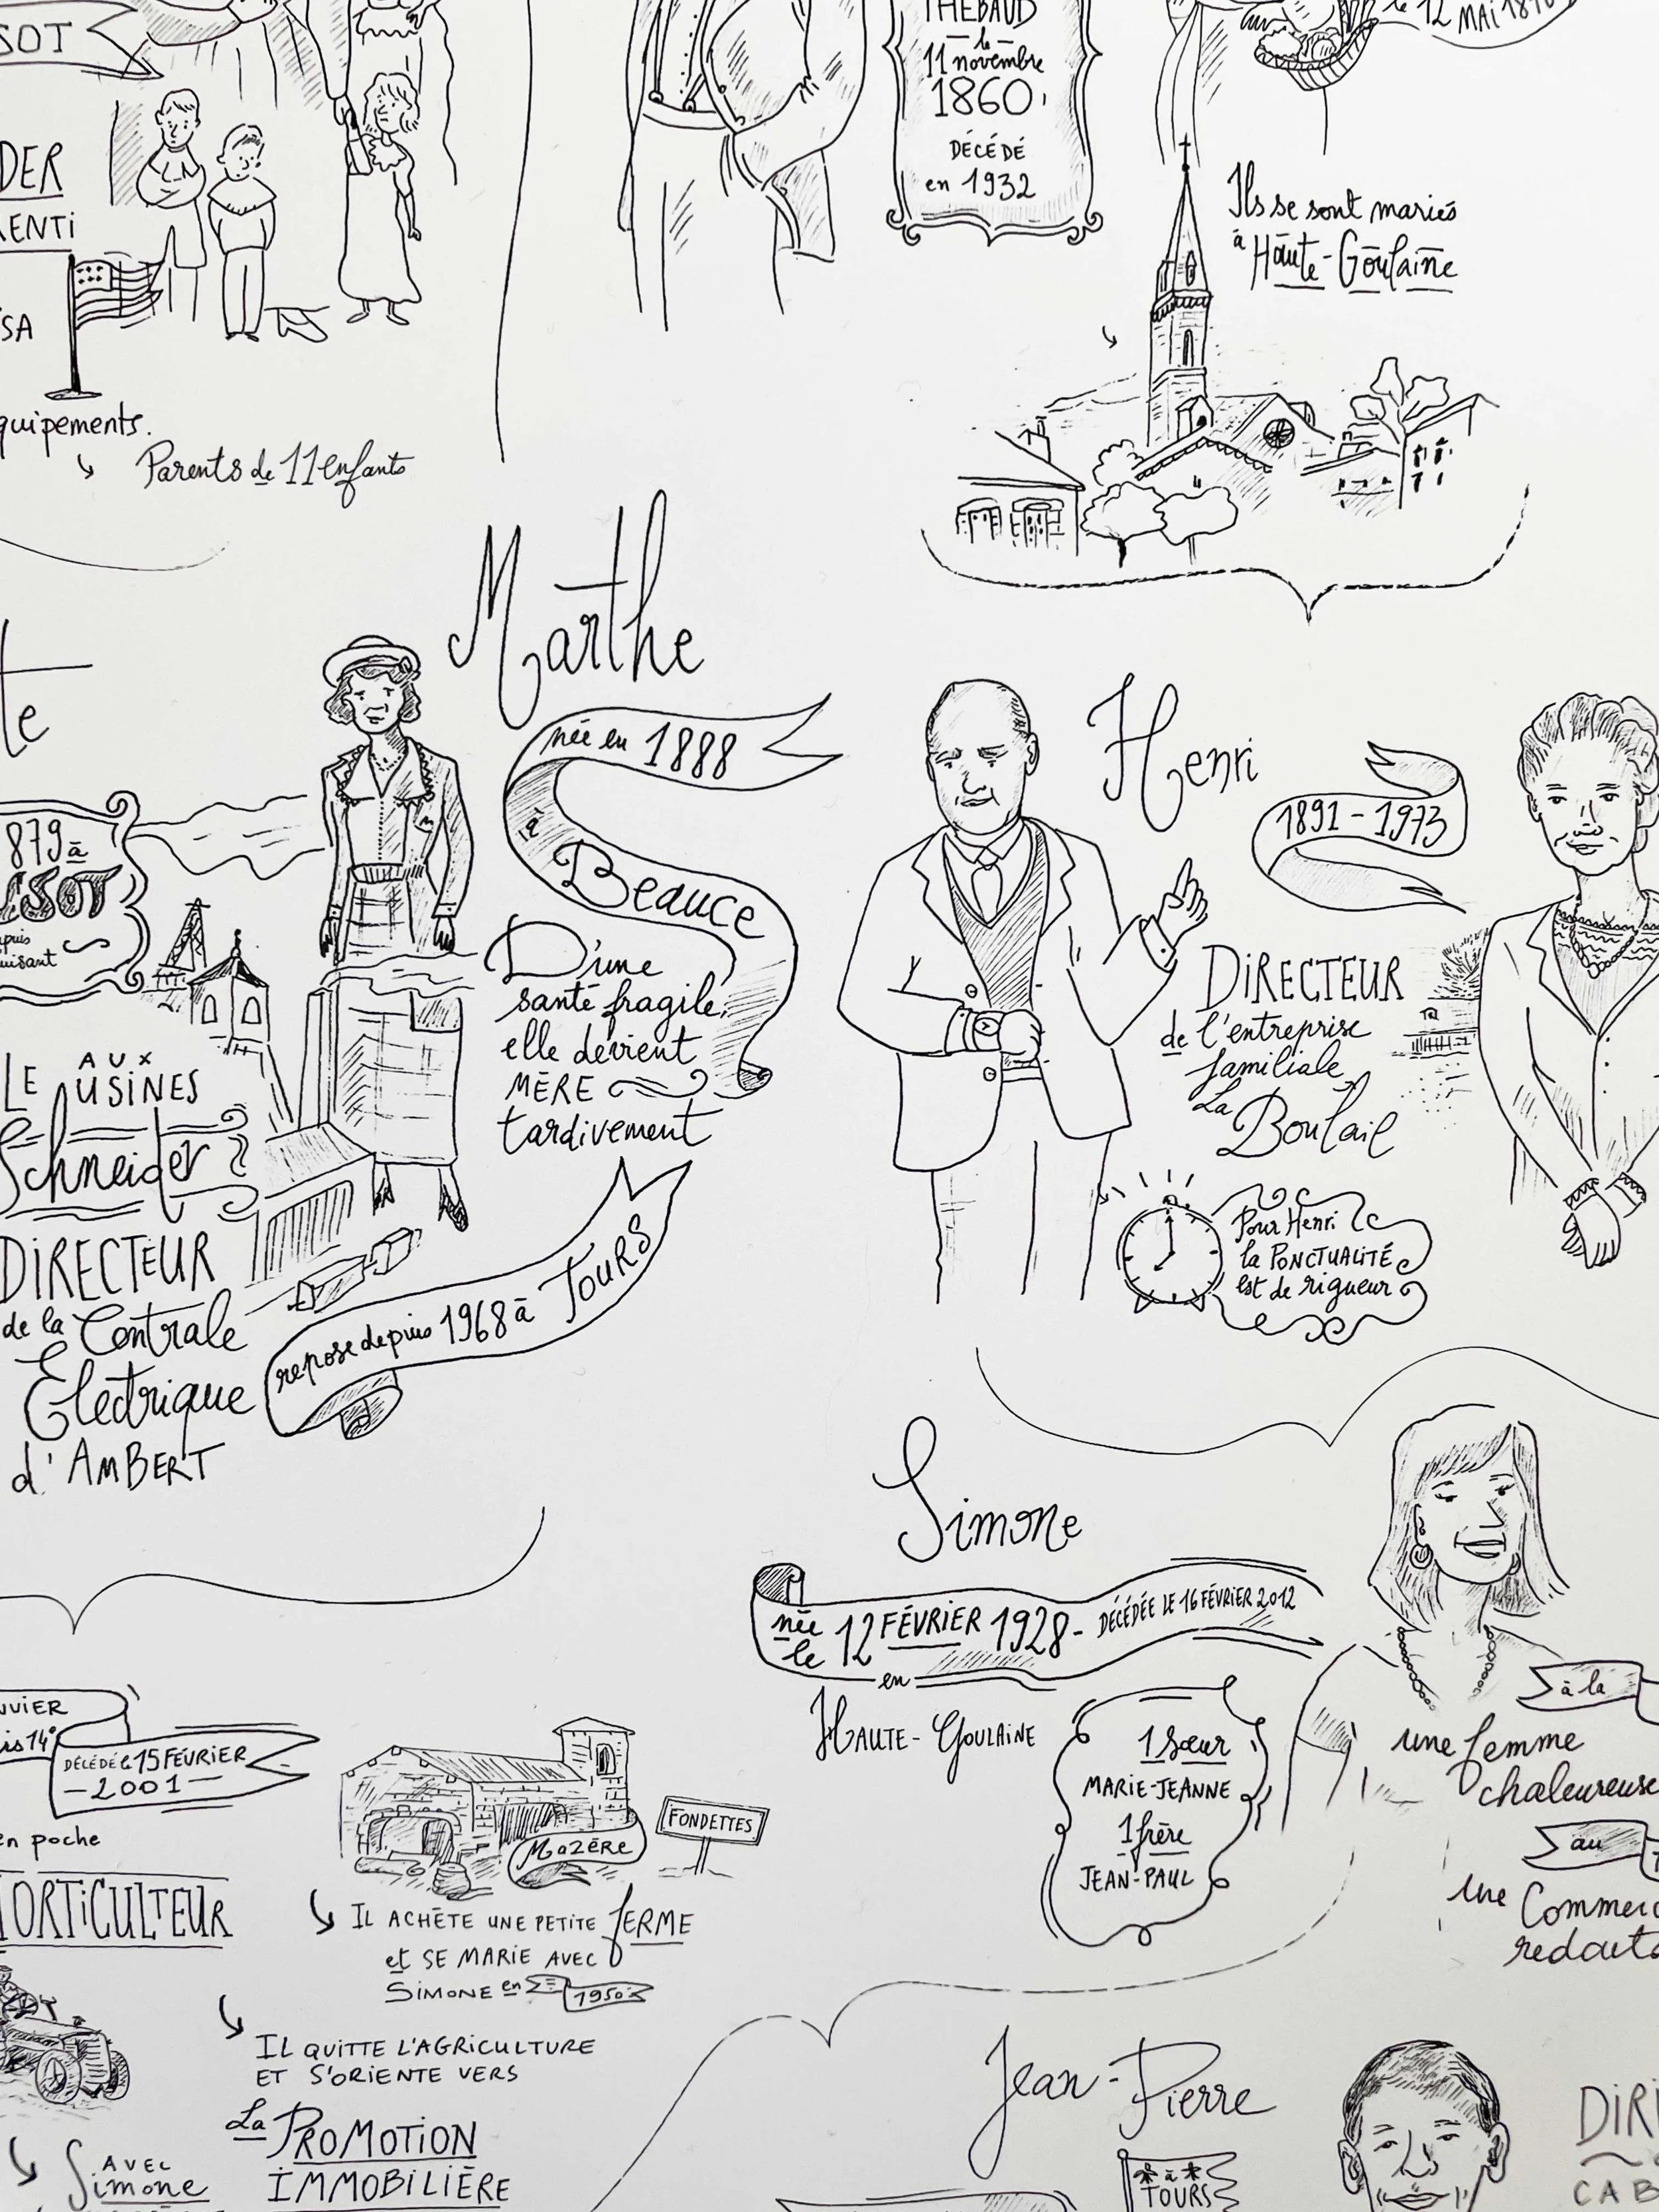 SOT
THÉBAUD
le
11 novembre
1860,
DÉCÉDÉ
en 1932
le 12 MAI
Ils se sont mariés
à Haute-Goulaine
DER
RENTI
SA
quipements.
Parents de 11 enfants
te
879 à
depuis
Marthe
née en 1888
à
Beauce
D'une
santé fragile,
elle devient
MÈRE
tardivement
repose depuis 1968 à TOURS
LE AUX USINES
Schneider
DIRECTEUR
de la Centrale
Electrique
d'AMBERT
Henri
1891 - 1973
DIRECTEUR
de l'entreprise
familiale
La
Boulail
Pour Henri
la PONCTUALITÉ
est de rigueur
Simone
née le 12 FÉVRIER 1928 - DÉCÉDÉE LE 16 FÉVRIER 2012
en
HAUTE-GOULAINE
1 Sœur
MARIE-JEANNE
1 frère
JEAN-PAUL
à la
une femme
chaleureuse
au
une Commerc
redouta
NVIER
is 14°
DÉCÉDÉ le 15 FÉVRIER
- 2001 -
en poche
HORTICULTEUR
MOZÈRE
FONDETTES
IL ACHÈTE UNE PETITE FERME
et SE MARIE AVEC
SIMONE en 1950
IL QUITTE L'AGRICULTURE
ET S'ORIENTE VERS
La PROMOTION
IMMOBILIÈRE
AVEC
Simone
Jean-Pierre
à
TOURS
DIRI
CAB